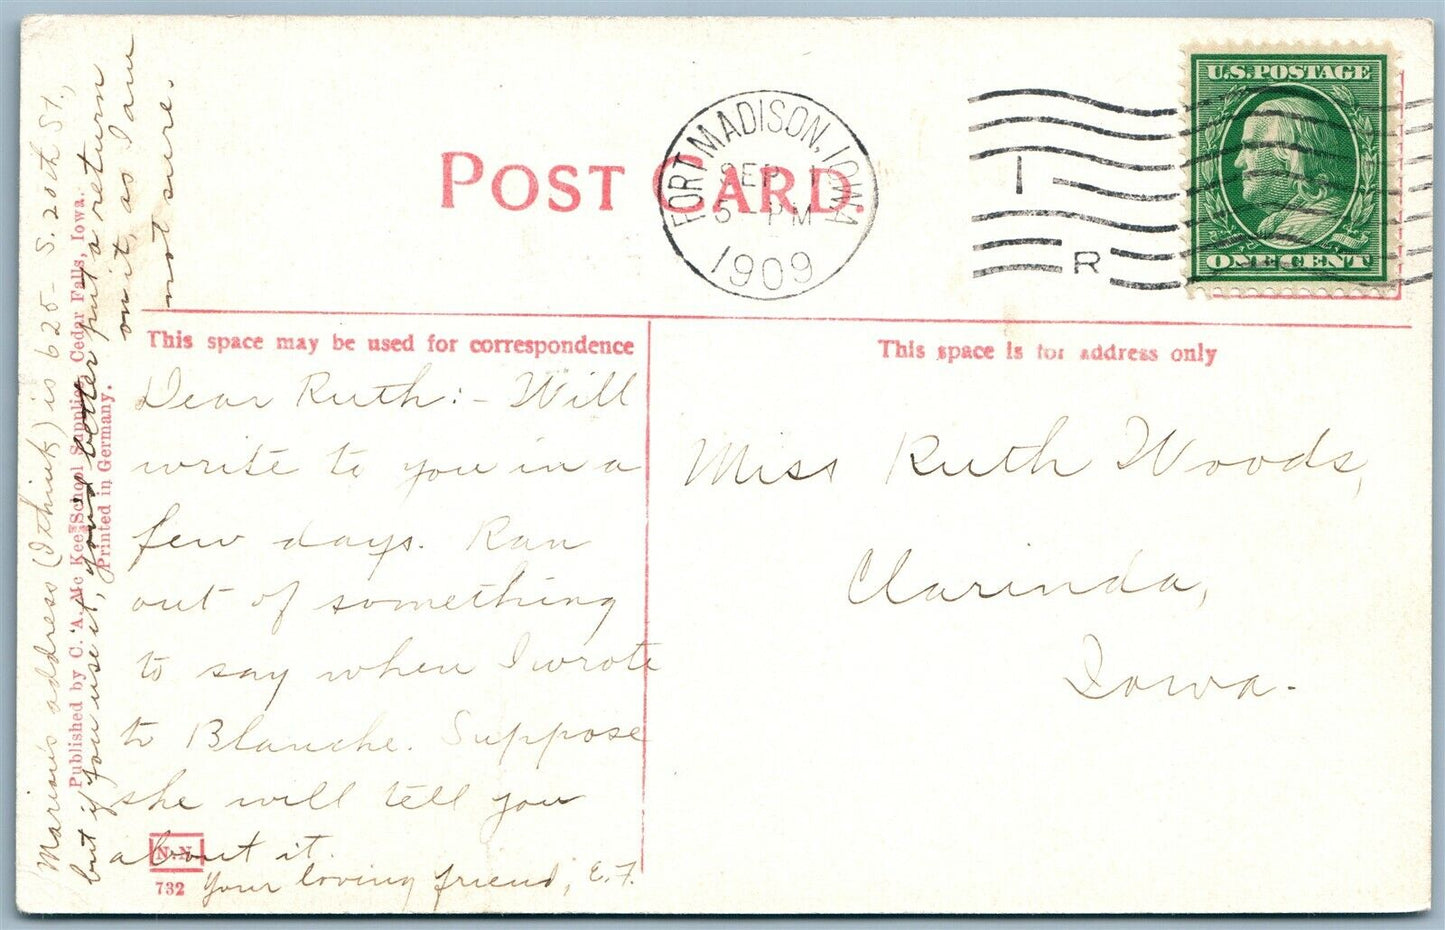 POST CARD.
FORT MADISON, IOWA
SEP 1
5-PM
1909
1
R
U.S. POSTAGE
ONE CENT
This space may be used for correspondence
This space is for address only
Dear Ruth:- Will
write to you in a
few days. Ran
out of something
to say when I wrote
to Blanche. Suppose
she will tell you
about it.
Your loving friend, E.F.
Miss Ruth Woods,
Clarinda,
Iowa.
Marion's address (I think) is 625- S. 20th St.,
but if you use it, you better put a return
on it, as I am
not sure.
Published by C. A. Mc Kee School Supplies, Cedar Falls, Iowa.
Printed in Germany.
N.N.
732